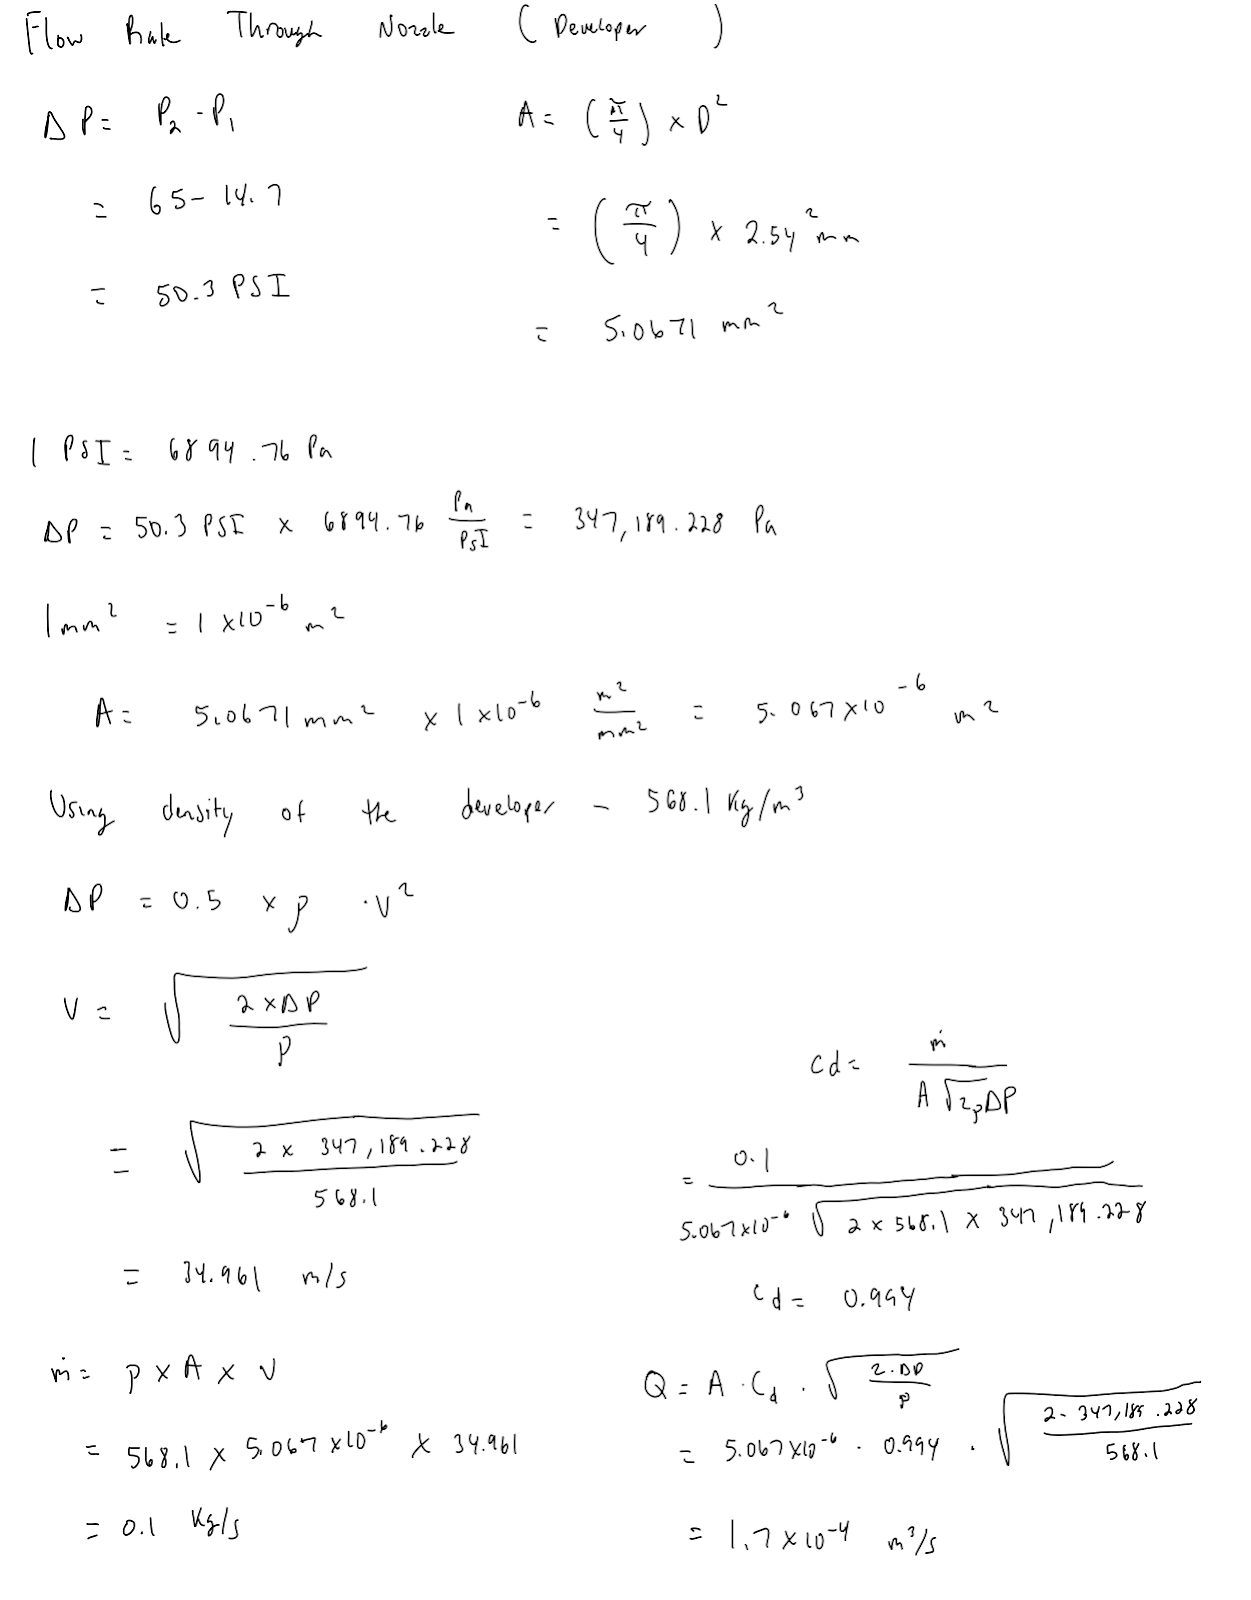 Flow Rate Through Nozzle (Developer)
ΔP = P₂ - P₁
= 65 - 14.7
= 50.3 PSI
A = (π/4) × D²
= (π/4) × 2.54² mm
= 5.0671 mm²
1 PSI = 6894.76 Pa
ΔP = 50.3 PSI × 6894.76 Pa/PSI = 347,189.228 Pa
1 mm² = 1 × 10⁻⁶ m²
A = 5.0671 mm² × 1 × 10⁻⁶ m²/mm² = 5.067 × 10⁻⁶ m²
Using density of the developer - 568.1 Kg/m³
ΔP = 0.5 × ρ · V²
V = √(2 × ΔP / ρ)
= √(2 × 347,189.228 / 568.1)
= 34.961 m/s
ṁ = ρ × A × V
= 568.1 × 5.067 × 10⁻⁶ × 34.961
= 0.1 Kg/s
Cd = ṁ / A √2ρΔP
= 0.1 / 5.067 × 10⁻⁶ √(2 × 568.1 × 347,189.228)
Cd = 0.994
Q = A · Cd · √(2 · ΔP / ρ)
= 5.067 × 10⁻⁶ · 0.994 · √(2 · 347,189.228 / 568.1)
= 1.7 × 10⁻⁴ m³/s